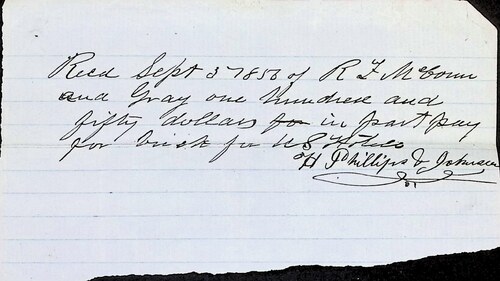 Recd Sept 3 1856 of R F McConn
and Gray one hundred and
fifty dollars in part pay
for brick for U S Hotel
H Phillips & Johnson